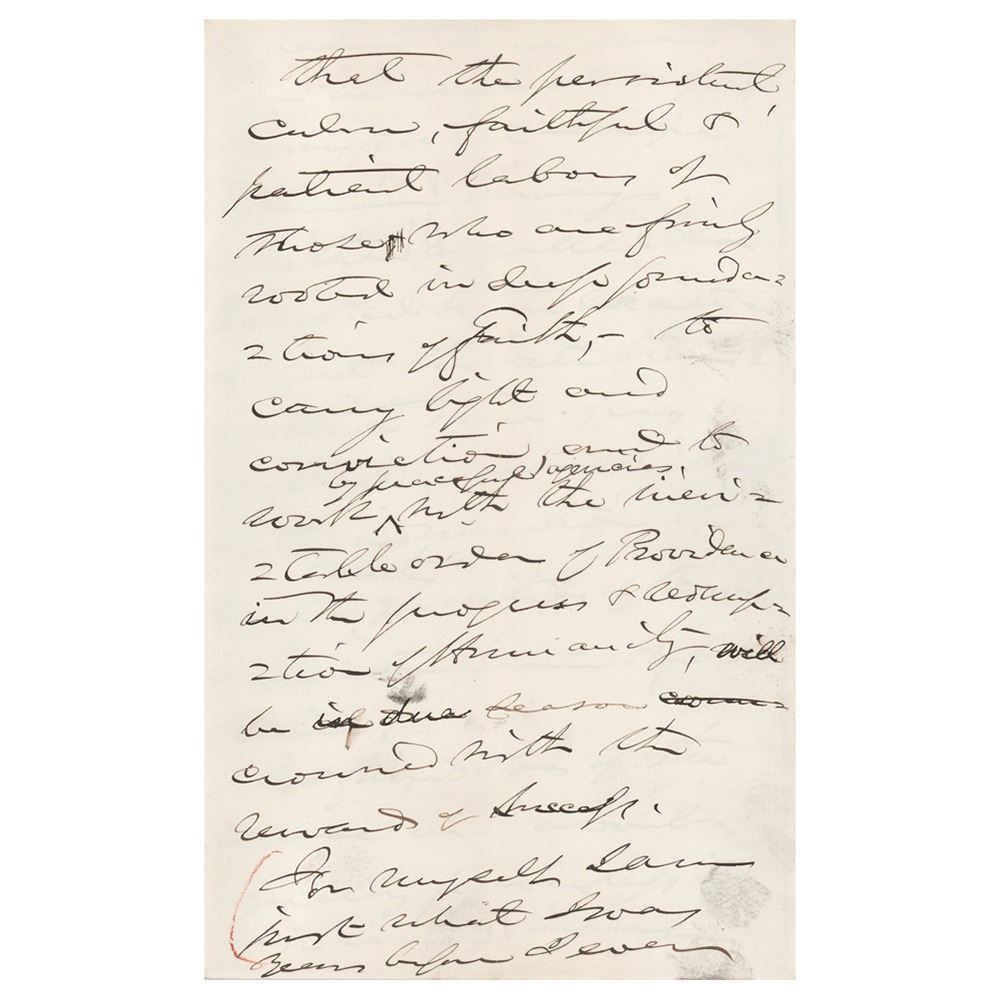 that the persistent,
calm, faithful &
patient labors of
those who are firmly
rooted in deep founda=
=tions of Faith,- to
carry light and
conviction, and to
by peaceful agencies,
work ^ with the inevi=
=table order of Providence
in the progress & redemp=
=tion of Humanity, will
be in due season crown=
crowned with the
reward of success.
For myself I am
just what I was
years before I ever